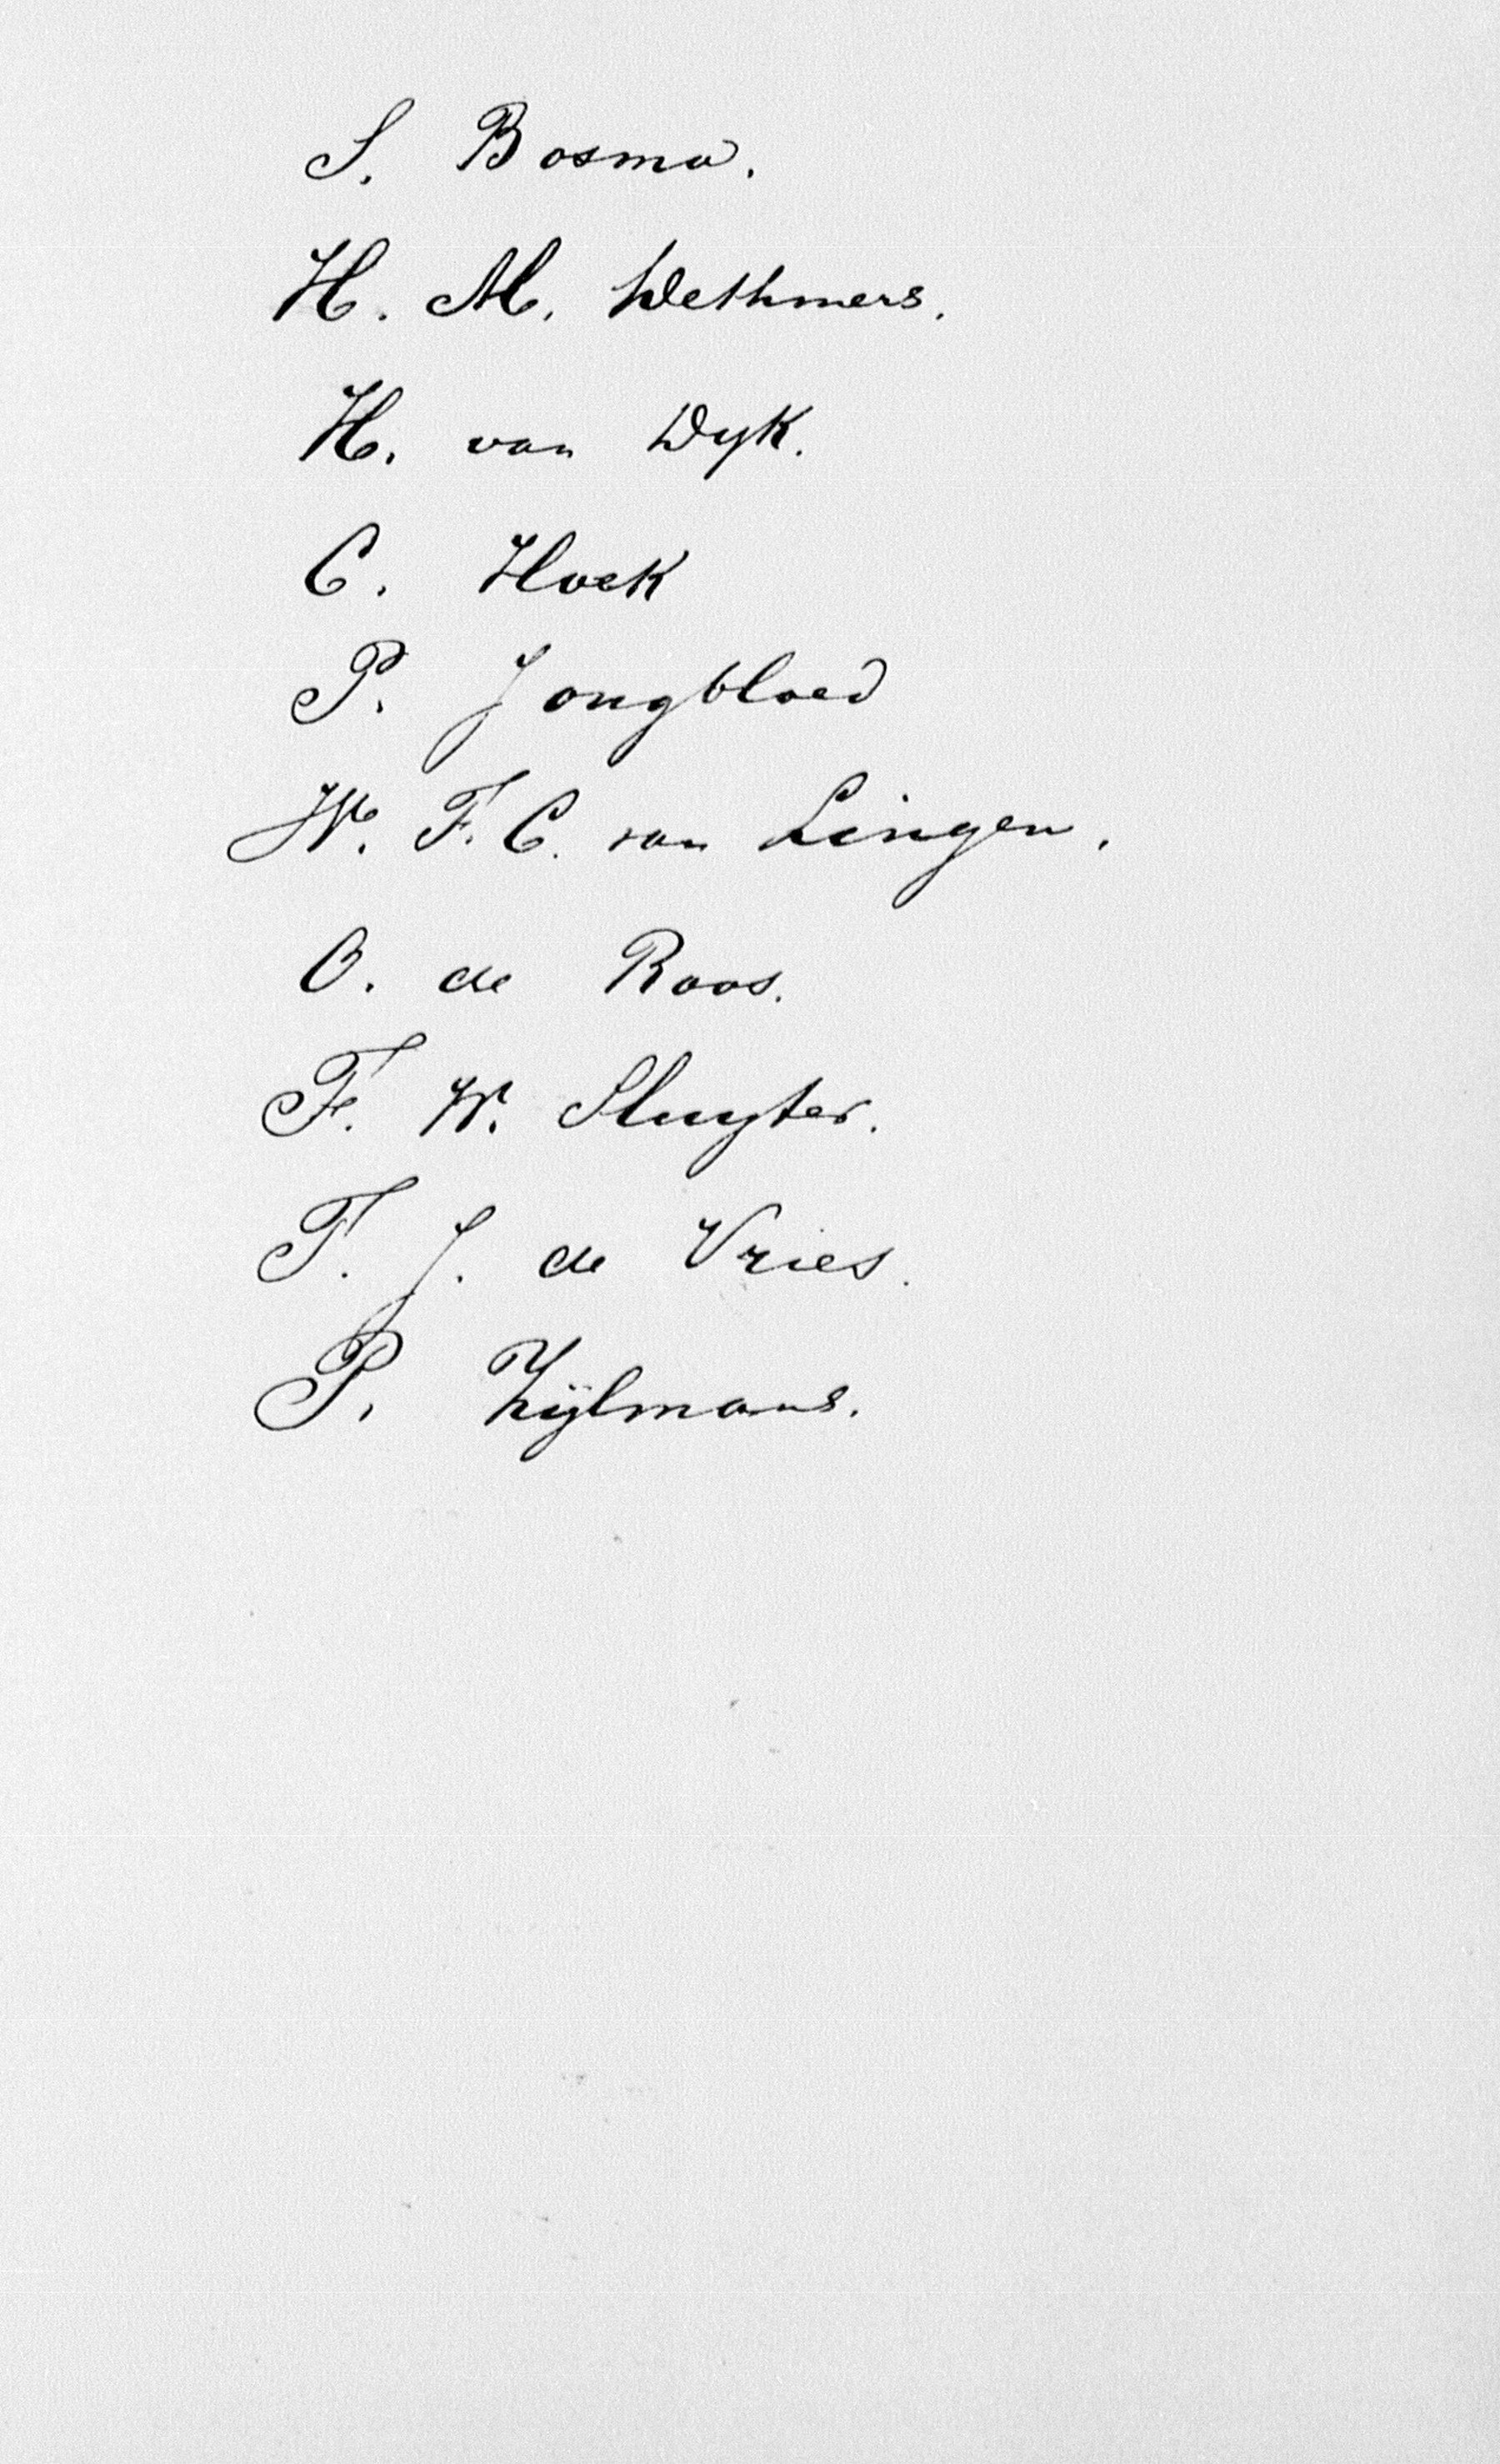 S. Bosma.
H. M. Dethmers.
H. van Dyk.
C. Hoek
P. Jongbloed
W. F. C. van Lingen.
O. de Roos.
F. W. Sluyter.
T. J. de Vries.
P. Zijlmans.